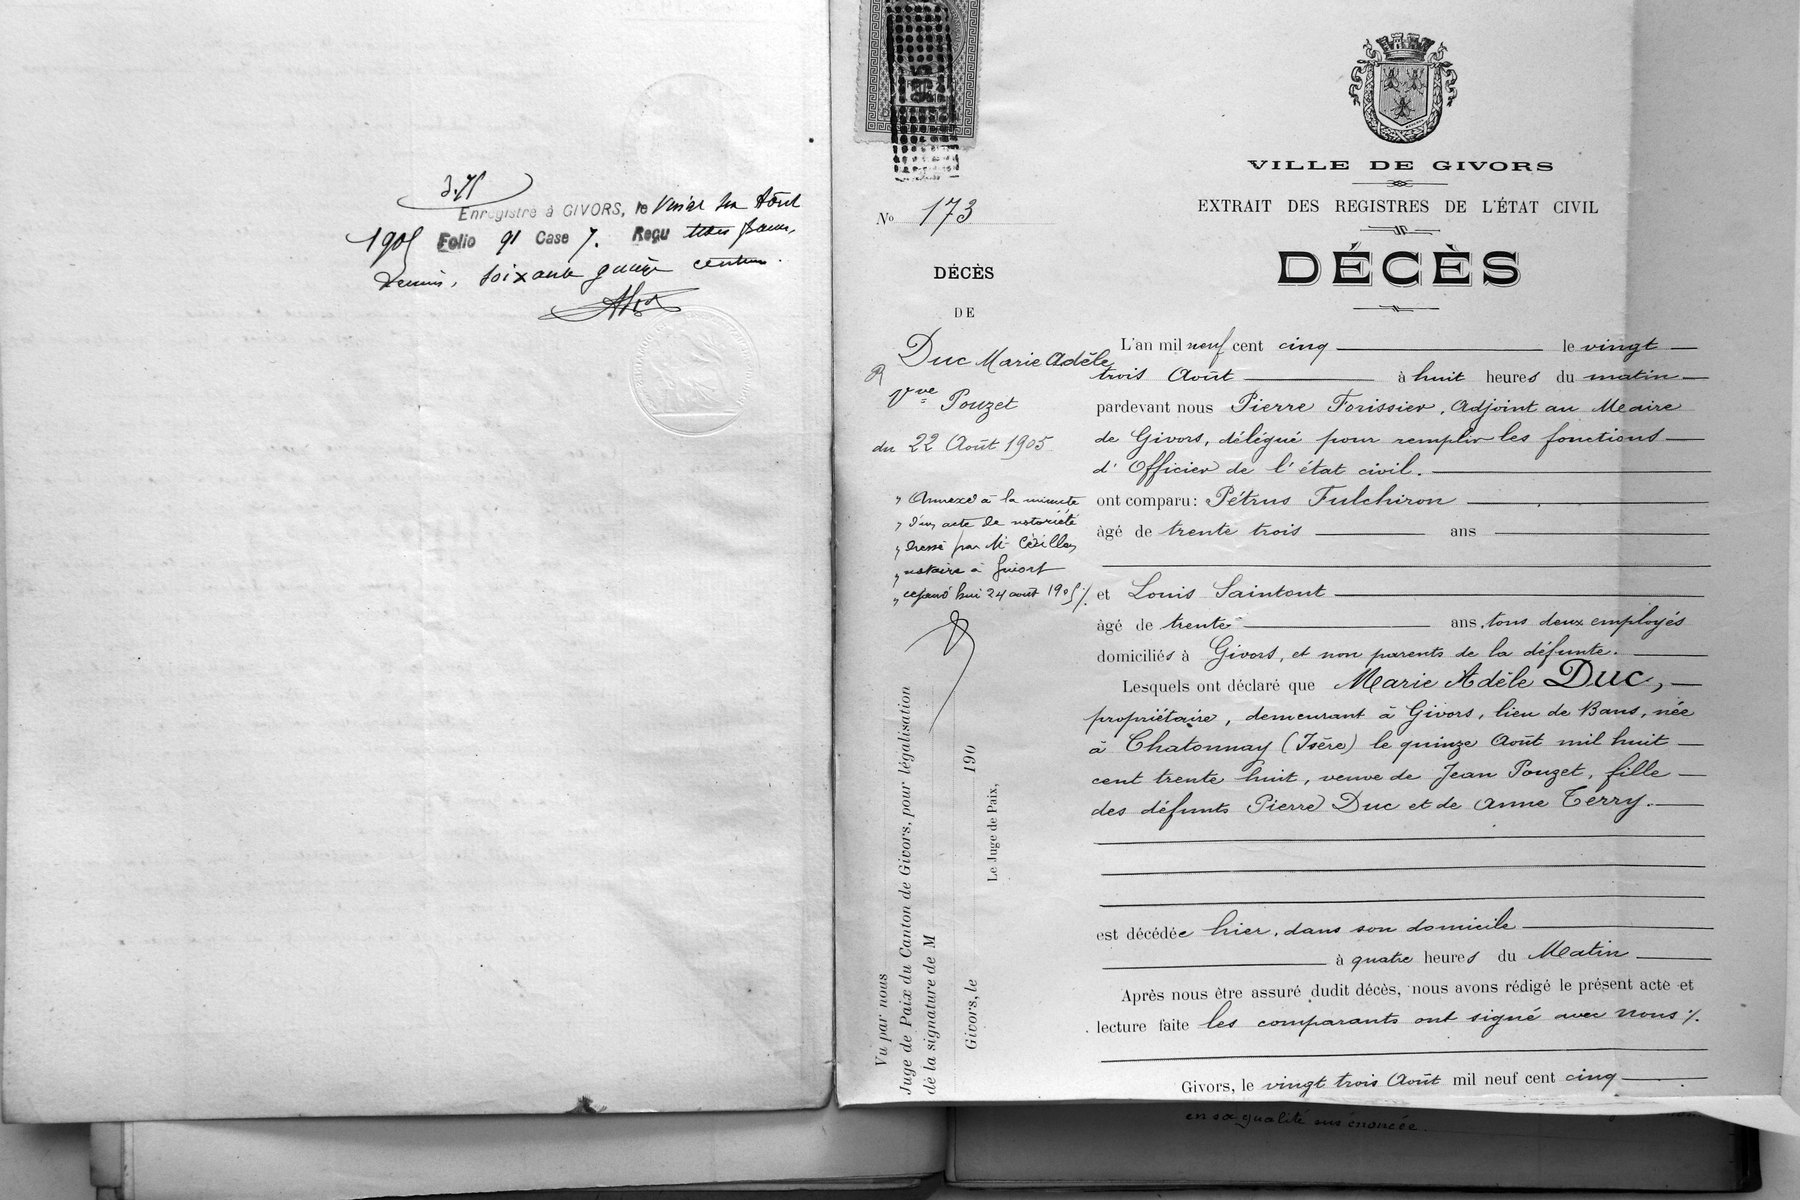 3.75
Enregistré à GIVORS, le vingt six Août
1905 Folio 91 Case 7. Reçu trois francs,
Décimes, soixante quinze centimes.
No 173
DÉCÈS
DE
Duc Marie Adèle
Vve Pouzet
du 22 Août 1905
" Annexé à la minute
" d'un acte de notoriété
" dressé par Me
" notaire à Givors
" cejourd'hui 24 août 1905 ./.
Vu par nous
Juge de Paix du Canton de Givors, pour légalisation
de la signature de M
Givors, le 190
Le Juge de Paix,
VILLE DE GIVORS
EXTRAIT DES REGISTRES DE L'ÉTAT CIVIL
DÉCÈS
L'an mil neuf cent cinq le vingt
trois Août à huit heures du matin
pardevant nous Pierre Forissier, Adjoint au Maire
de Givors, délégué pour remplir les fonctions
d'Officier de l'état civil.
ont comparu: Pétrus Fulchiron
âgé de trente trois ans
et Louis Saintont
âgé de trente ans, tous deux employés
domiciliés à Givors, et non parents de la défunte.
Lesquels ont déclaré que Marie Adèle Duc,
propriétaire, demeurant à Givors, lieu de Bans, née
à Chatonnay (Isère) le quinze Août mil huit
cent trente huit, veuve de Jean Pouzet, fille
des défunts Pierre Duc et de Anne Terry.
est décédée hier, dans son domicile
à quatre heures du Matin
Après nous être assuré dudit décès, nous avons rédigé le présent acte et
lecture faite les comparants ont signé avec nous ./.
Givors, le vingt trois Août mil neuf cent cinq
en sa qualité sus énoncée.